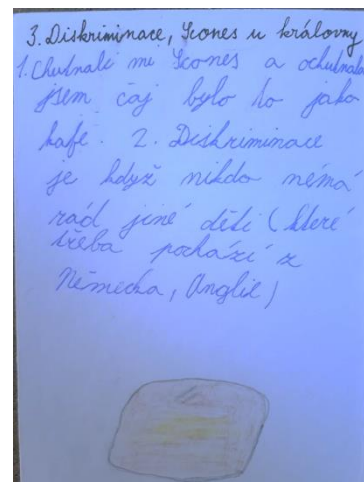 3. Diskriminace, Scones u královny
1. Chutnali mi Scones a ochutnala
jsem čaj bylo to jako
kafe. 2. Diskriminace
je když nikdo nemá
rád jiné děti (které
třeba pochází z
Německa, Anglie)